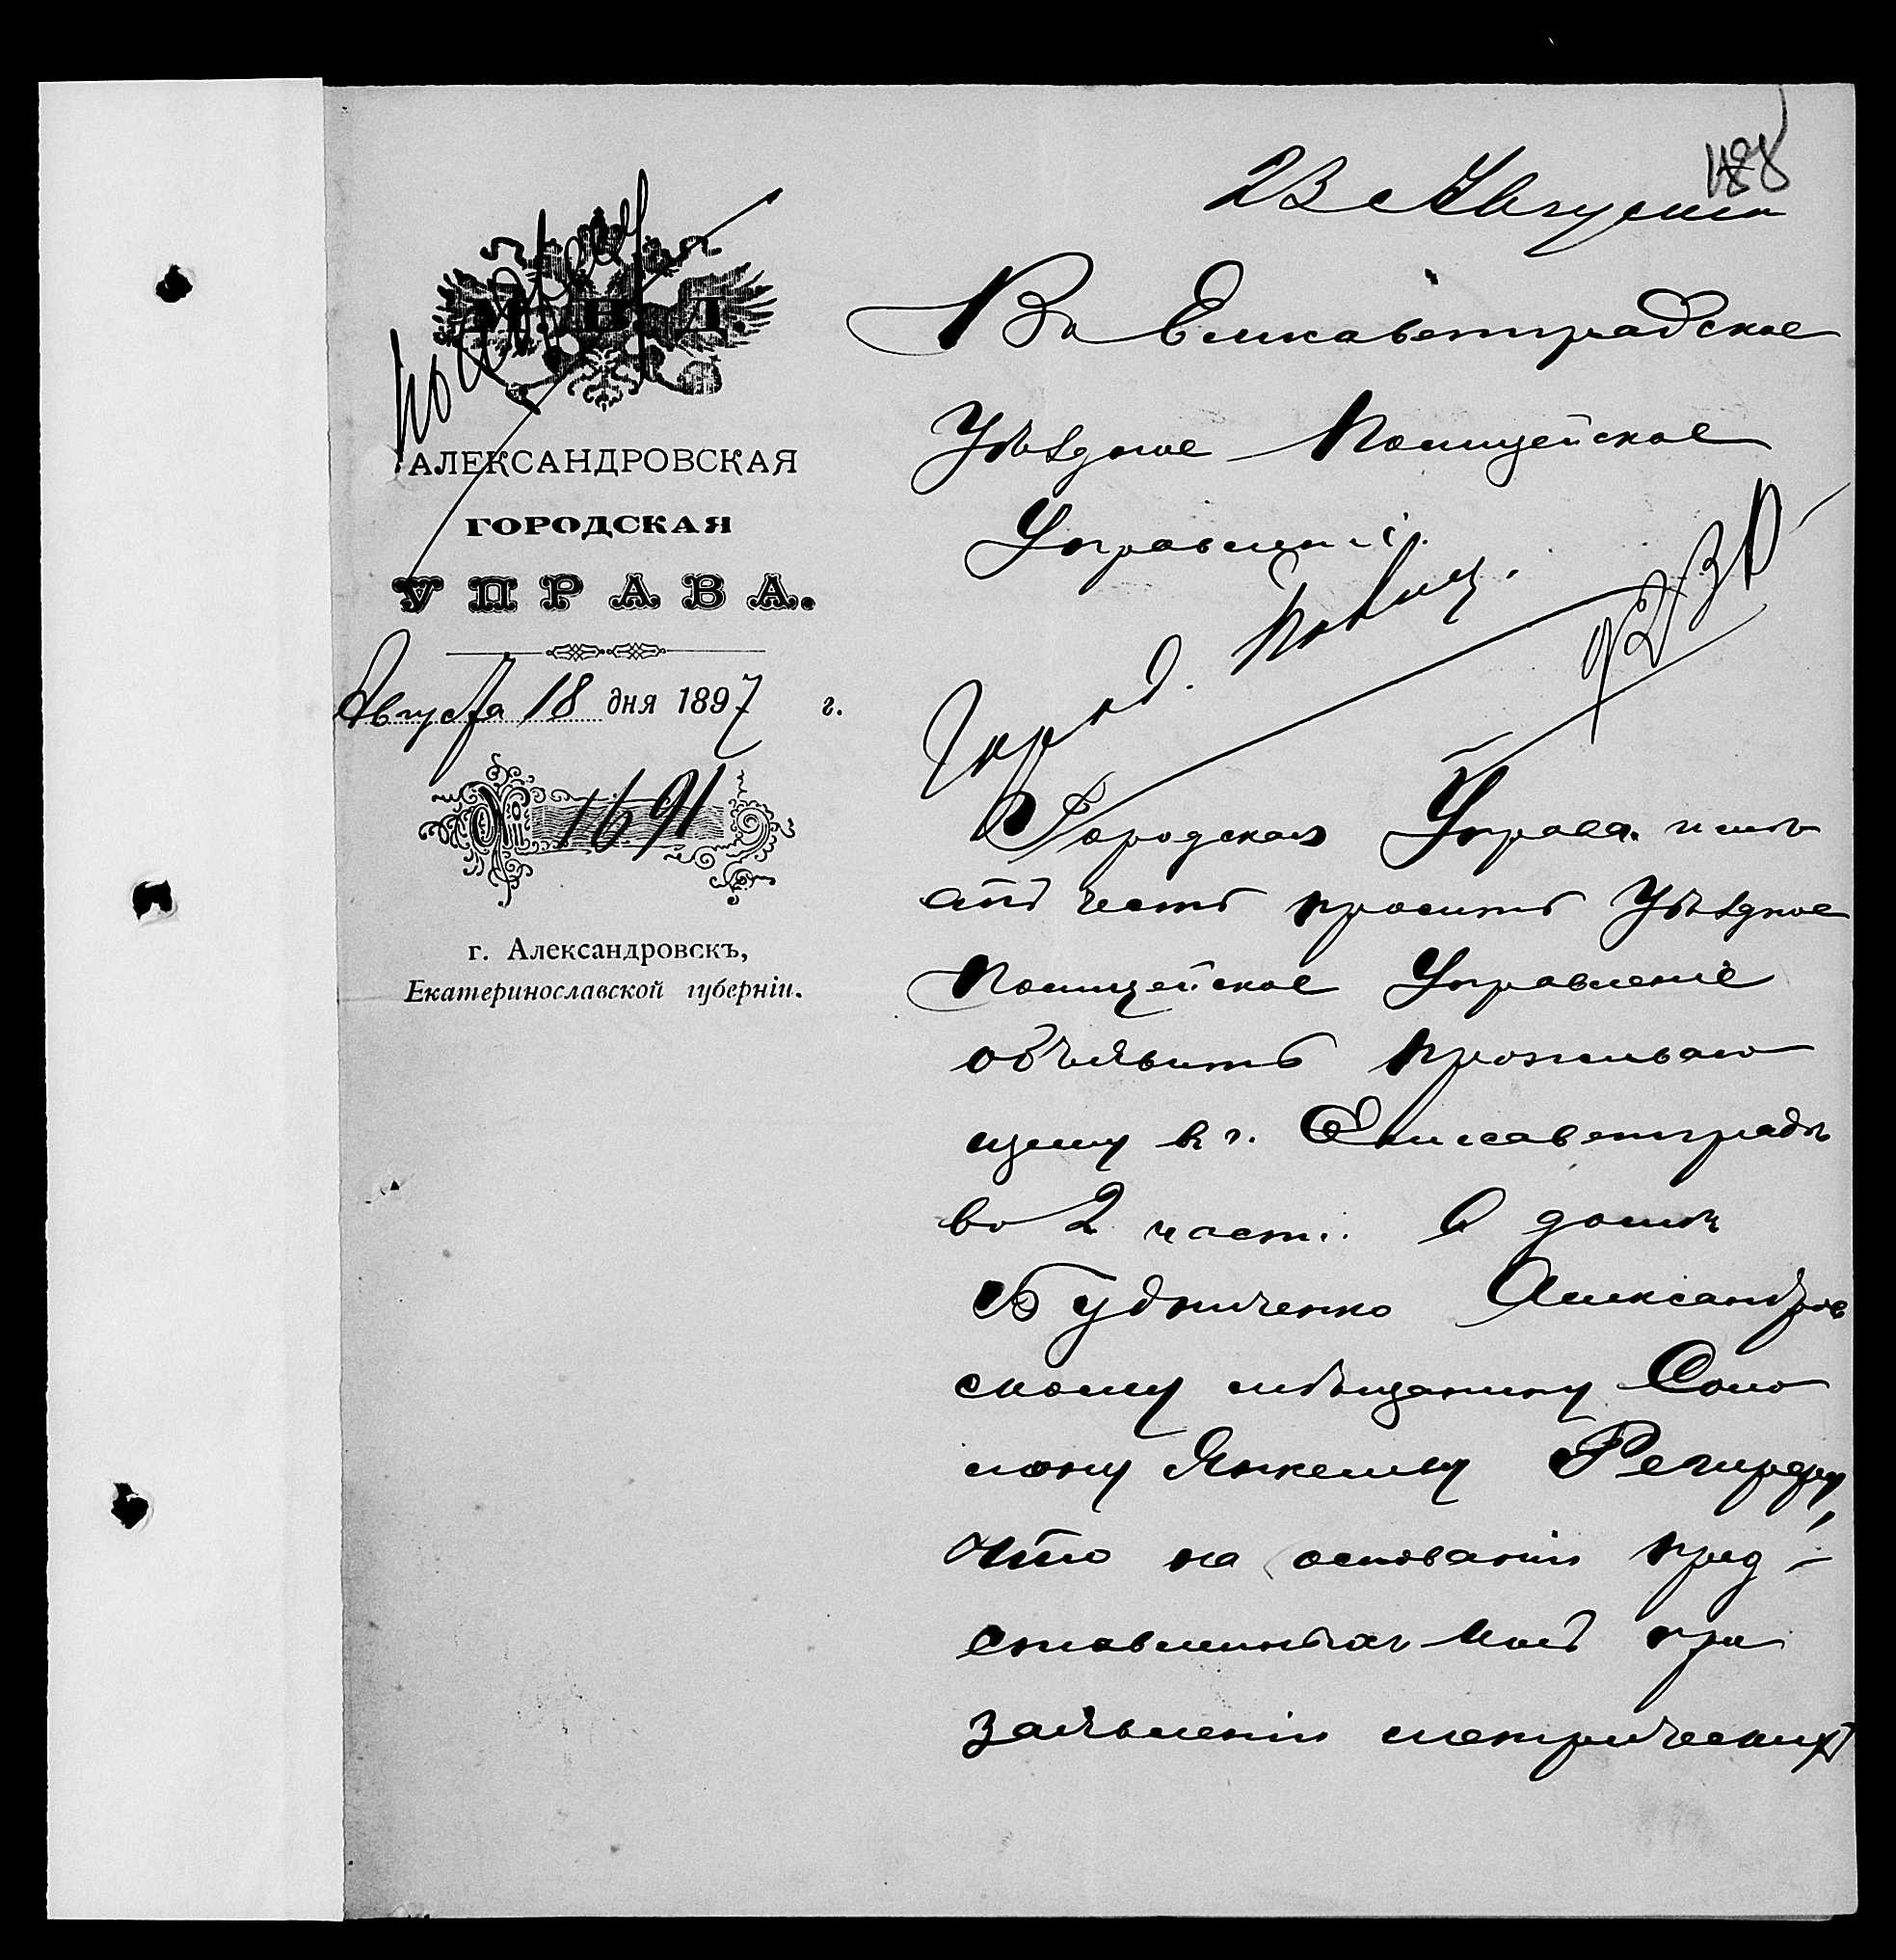 188
23 Августа
М. В. Д.
АЛЕКСАНДРОВСКАЯ
ГОРОДСКАЯ
УПРАВА.
Августа 18 дня 1897 г.
№ 1691
г. Александровскъ,
Екатеринославской губерніи.
Въ Елисаветградское
Уѣздное Полицейское
Управленіе.
Город. Полиц.
Городская Управа имѣ
етъ честь просить Уѣздное
Полицейское Управленіе
объявить проживаю
щему въ г. Елисаветградѣ
во 2 части въ домѣ
Будниченко Александров
скому мѣщанину Соло
мону Янкелеву
что на основаніи пред-
ставленныхъ имъ при
заявленіи метрическихъ